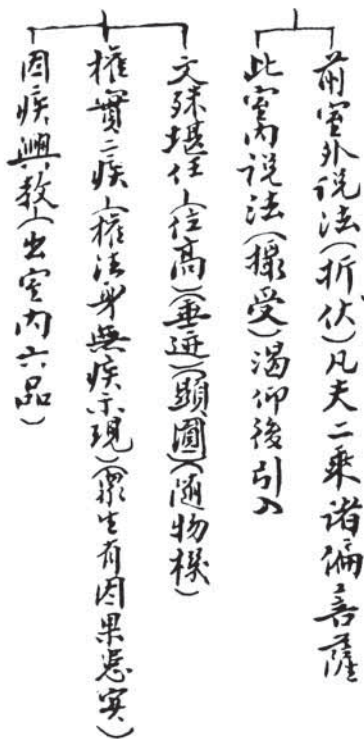 前室外説法(折伏)凡夫二乘諸偏菩薩
此室内説法(攝受)渴仰後引入
文殊堪任—(位高)(垂迹)(顯圓)(隨物機)
權實二疾—(權法身無疾示現)(眾生有因果惑實)
因疾興教—(出室内六品)